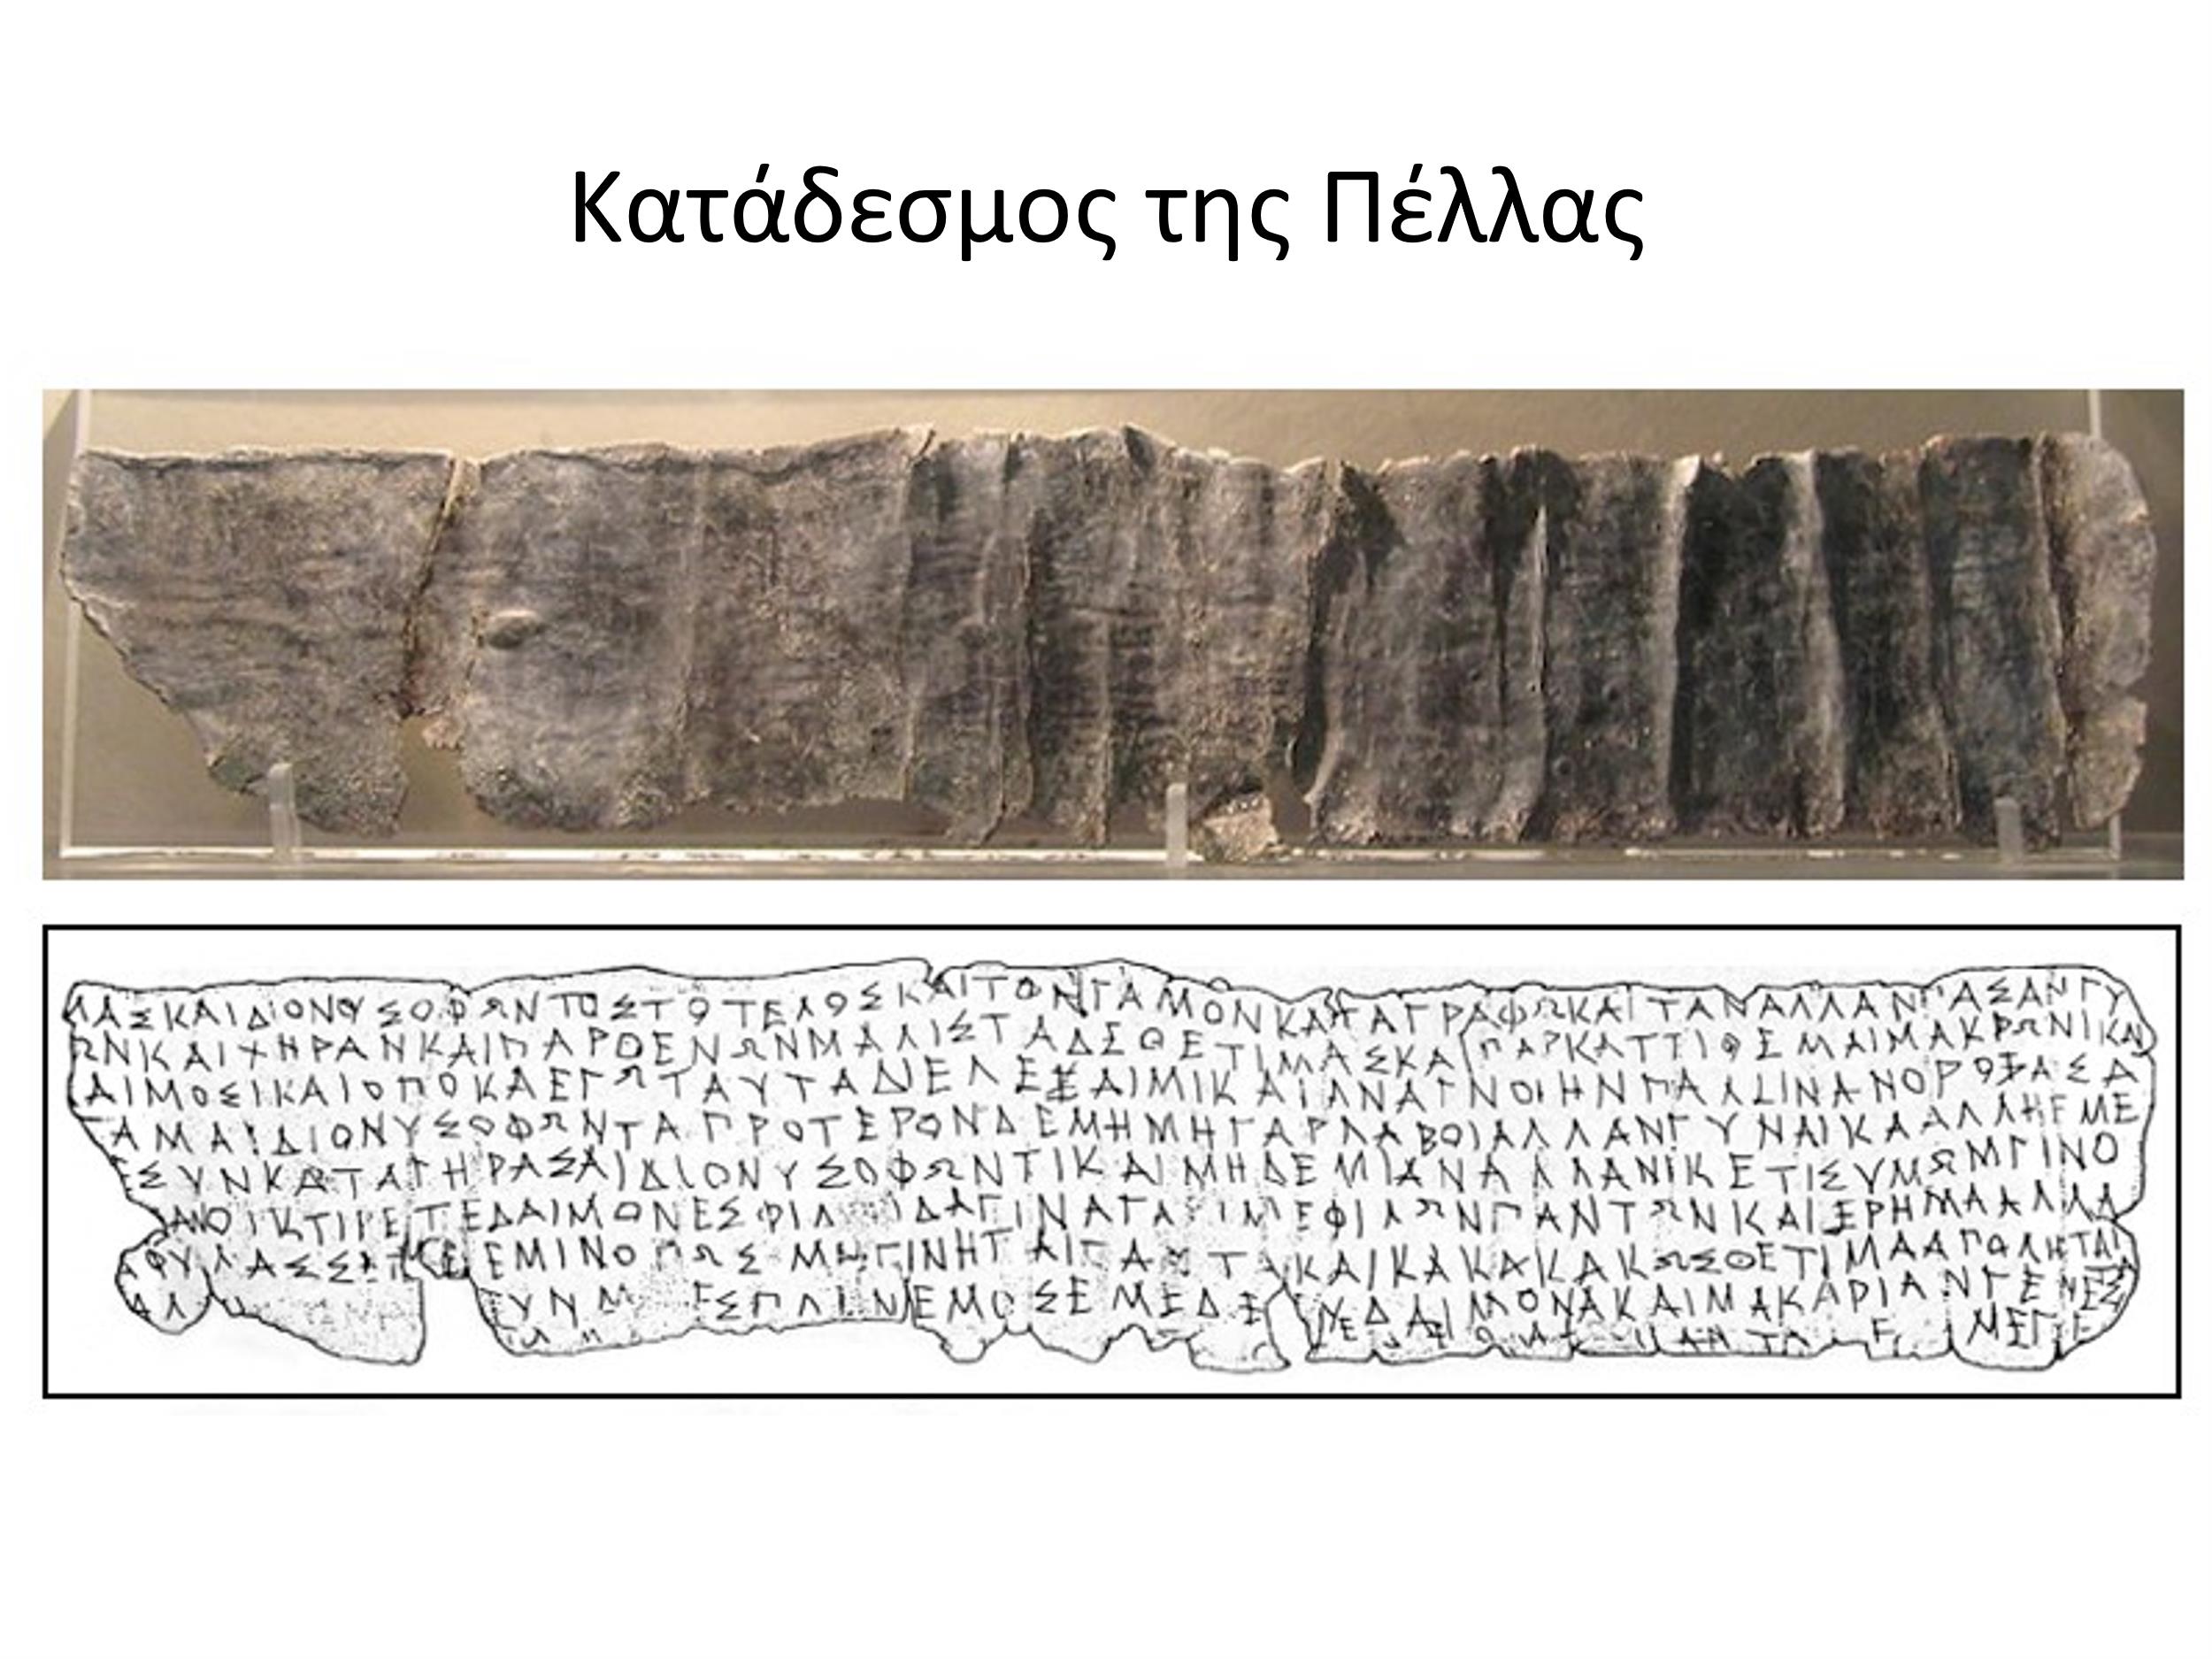 Κατάδεσμος της Πέλλας
ΜΑΣΚΑΙΔΙΟΝΥΣΟΦΩΝΤΟΣΤΟΤΕΛΟΣΚΑΙΤΟΝΓΑΜΟΝΚΑΤΑΓΡΑΦΩΚΑΙΤΑΝΑΛΛΑΝΠΑΣΑΝΓΥ
ΩΝΚΑΙΧΗΡΑΝΚΑΙΠΑΡΘΕΝΩΝΜΑΛΙΣΤΑΔΕΘΕΤΙΜΑΣΚΑΙΠΑΡΚΑΤΤΙΘΕΜΑΙΜΑΚΡΩΝΙΚΑΙ
ΔΑΙΜΟΣΙΚΑΙΟΠΟΚΑΕΓΩΤΑΥΤΑΔΙΕΛΕΞΑΙΜΙΚΑΙΑΝΑΓΝΟΙΗΝΠΑΛΙΝΑΝΟΡΟΞΑΣΑ
ΓΑΜΑΙΔΙΟΝΥΣΟΦΩΝΤΑΠΡΟΤΕΡΟΝΔΕΜΗΜΗΓΑΡΛΑΒΟΙΑΛΛΑΝΓΥΝΑΙΚΑΑΛΛΗΕΜΕ
ΕΣΥΝΚΑΤΑΓΗΡΑΣΑΙΔΙΟΝΥΣΟΦΩΝΤΙΚΑΙΜΗΔΕΜΙΑΝΑΛΛΑΝΙΚΕΤΙΣΥΜΩΜΓΙΝΟ
ΑΝΟΙΚΤΙΡΕΤΕΔΑΙΜΟΝΕΣΦΙΛ ΙΔΑΓΙΝΑΓΑ ΙΜΕΦΙΛΩΝΠΑΝΤΩΝΚΑΙΕΡΗΜΑΑΛΛΑ
ΦΥΛΑΣΣΕΤΕΕΜΙΝΟΠΩΣΜΗΓΙΝΗΤΑΙΤΑΥΤΑΚΑΙΚΑΚΑΚΑΚΩΣΘΕΤΙΜΑΑΠΟΛΗΤΑΙ
ΑΛ ΥΝΜ ΕΣΠΛΗΝΕΜΟΣΕΜΕΔΕ ΥΔΑΙΜΟΝΑΚΑΙΜΑΚΑΡΙΑΝΓΕΝΕΣ